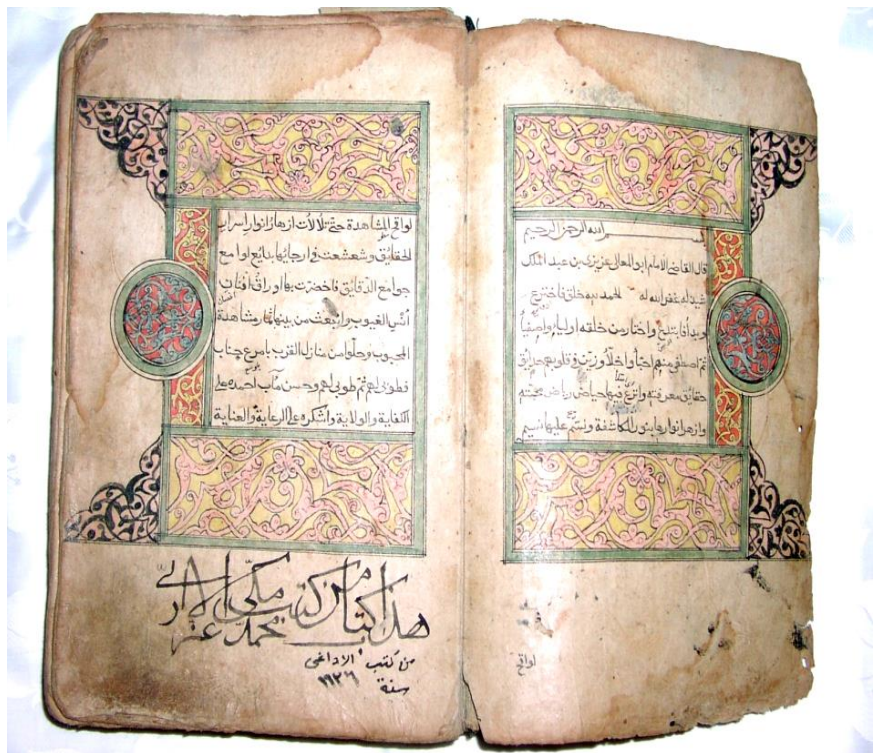 بسم الله الرحمن الرحيم
قال القاضي الامام ابو المعالي عزيزي بن عبد الملك
شيذله غفر الله له الحمد لله خلق فاخترع
وبدا فابتدع واختار من خلقه اولياء واصفياء
ثم اصطفى منهم احباء واخلاء وزين في قلوبهم حدائق
حقائق معرفته وانزع فيها حياض رياض محبته
وازهر انوارها بنور المكاشفة ونسم عليها نسيم
لواقح
لواقح المشاهدة حتى تلألأت ازهار انوار اسرار
الحقائق وشعشعت في ارجائها بدائع لوامع
جوامع الدقايق فاخضرت بها اوراق افنان
أنس الغيوب وانبعث من بينها ثمار مشاهدة
المحبوب وحلوا من منازل القرب بامرع جناب
فطوبى لهم ثم طوبى لهم وحسن مآب احمده على
الكفاية والولاية واشكره على الرعاية والعناية
هذا كتاب من كتب مكي
محمد
من كتب الاداغى
سنة ١٩٢٦